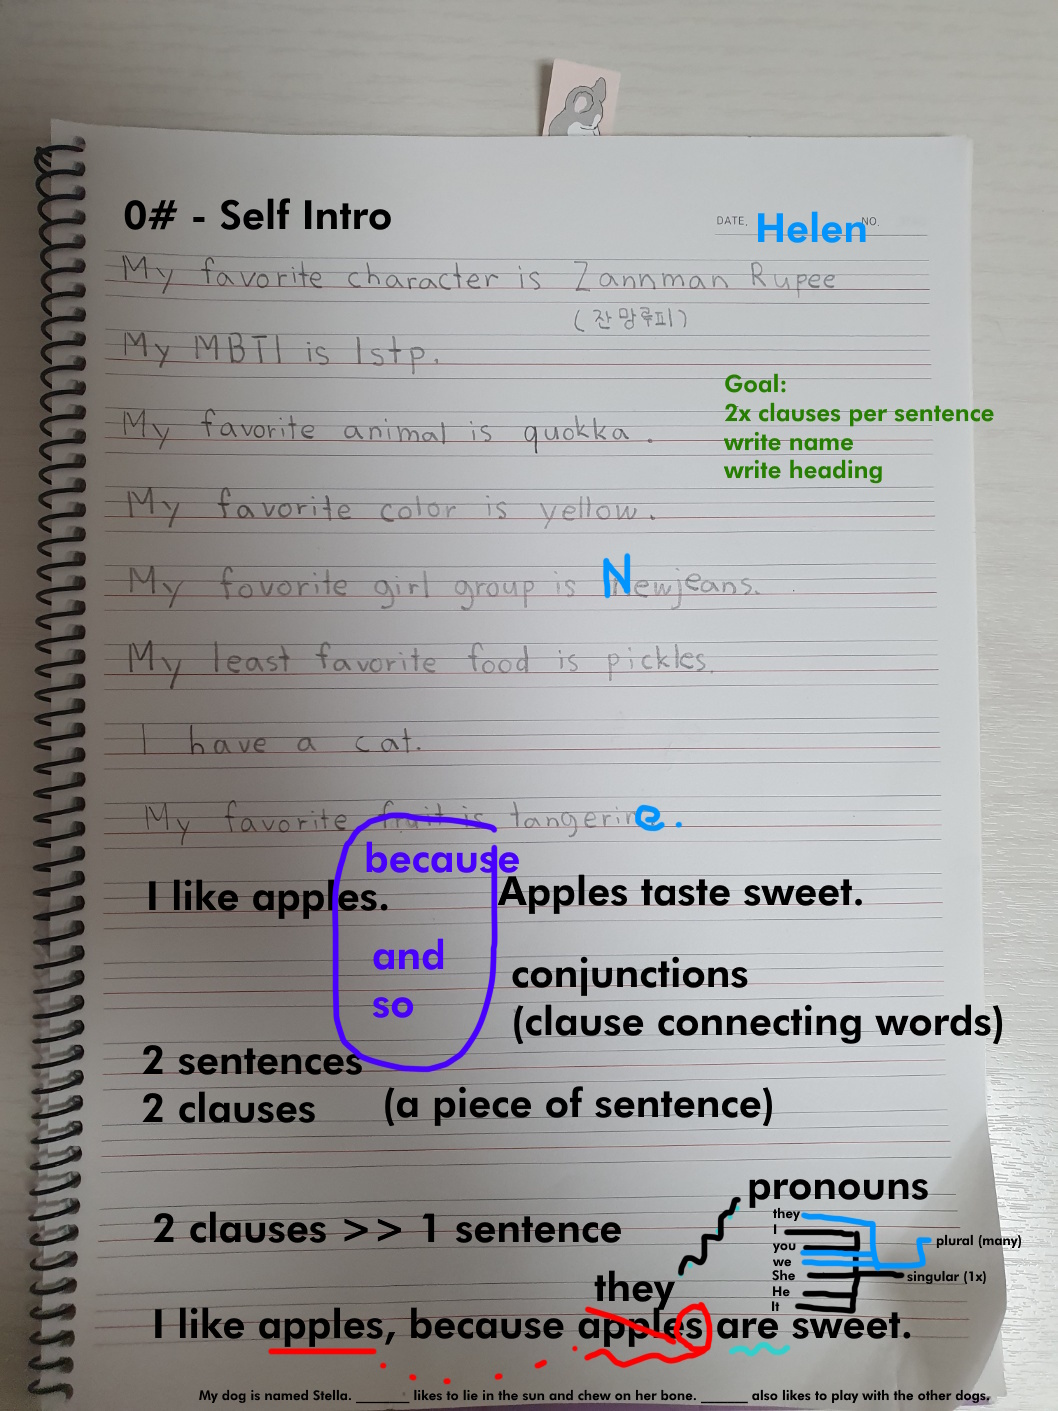 0# - Self Intro
DATE. Helen NO.
My favorite character is Zannman Rupee
(잔망루피)
My MBTI is Istp.
Goal:
2x clauses per sentence
write name
write heading
My favorite animal is quokka.
My favorite color is yellow.
My fovorite girl group is Newjeans.
My least favorite food is pickles.
I have a cat.
My favorite fruit is tangerine.
because
I like apples. Apples taste sweet.
and
so
conjunctions
(clause connecting words)
2 sentences
2 clauses (a piece of sentence)
pronouns
they
I
you
we
She
He
It
plural (many)
singular (1x)
2 clauses >> 1 sentence
they
I like apples, because apples are sweet.
My dog is named Stella. _______ likes to lie in the sun and chew on her bone. ______ also likes to play with the other dogs.